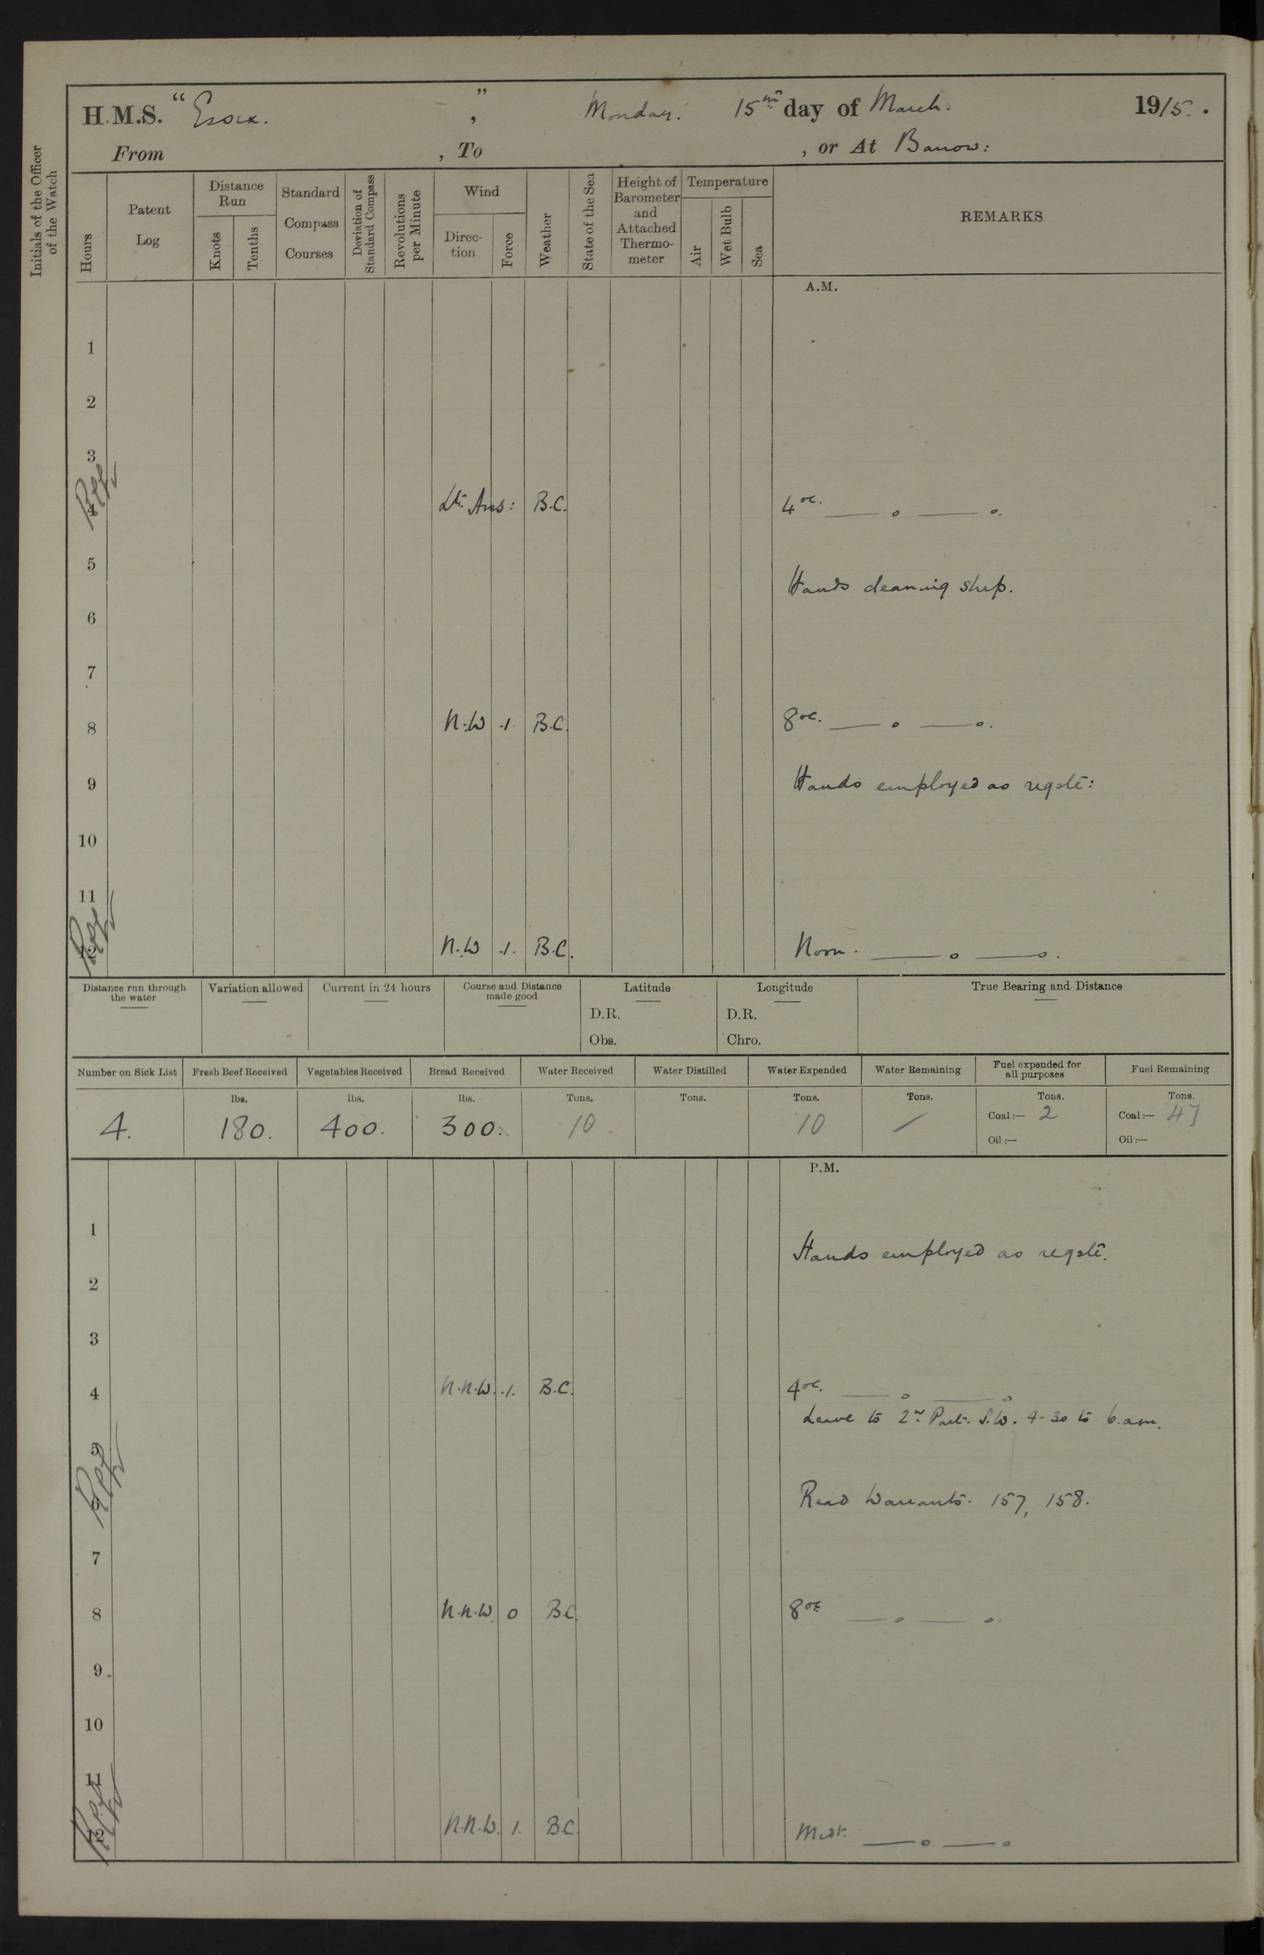 H.M.S. "Essex. ", Monday. 15th day of March. 1915.
From , To , or At Barrow:
Initials of the Officer of the Watch
Hours
Patent Log
Distance Run
Knots
Tenths
Standard Compass Courses
Deviation of Standard Compass
Revolutions per Minute
Wind
Direction
Force
Weather
State of the Sea
Height of Barometer and Attached Thermometer
Temperature
Air
Wet Bulb
Sea
REMARKS
A.M.
1
2
3
Lt. Airs: B.C. 4 oc. — o — o.
5
Hands cleaning ship.
6
7
8 N.W .1. B.C. 8 oc. — o — o.
9 Hands employed as reqste:
10
11
N.W .1. B.C. Noon. — o — o.
Distance run through the water
Variation allowed
Current in 24 hours
Course and Distance made good
Latitude
D.R.
Obs.
Longitude
D.R.
Chro.
True Bearing and Distance
Number on Sick List
4.
Fresh Beef Received
lbs.
180.
Vegetables Received
lbs.
400.
Bread Received
lbs.
300.
Water Received
Tons.
10.
Water Distilled
Tons.
Water Expended
Tons.
10
Water Remaining
Tons.
/
Fuel expended for all purposes
Tons.
Coal:— 2
Oil:—
Fuel Remaining
Tons.
Coal:— 47
Oil:—
P.M.
1
Hands employed as reqste.
2
3
4 N.N.W. .1. B.C. 4 oc. — o — o
Leave to 2nd Part. S.W. 4-30 to 6.am.
5
Read Warrants. 157, 158.
7
8 N.N.W. 0 B.C. 8 oc — o — o.
9
10
11
N.N.W. 1. B.C. Midt. — o — o